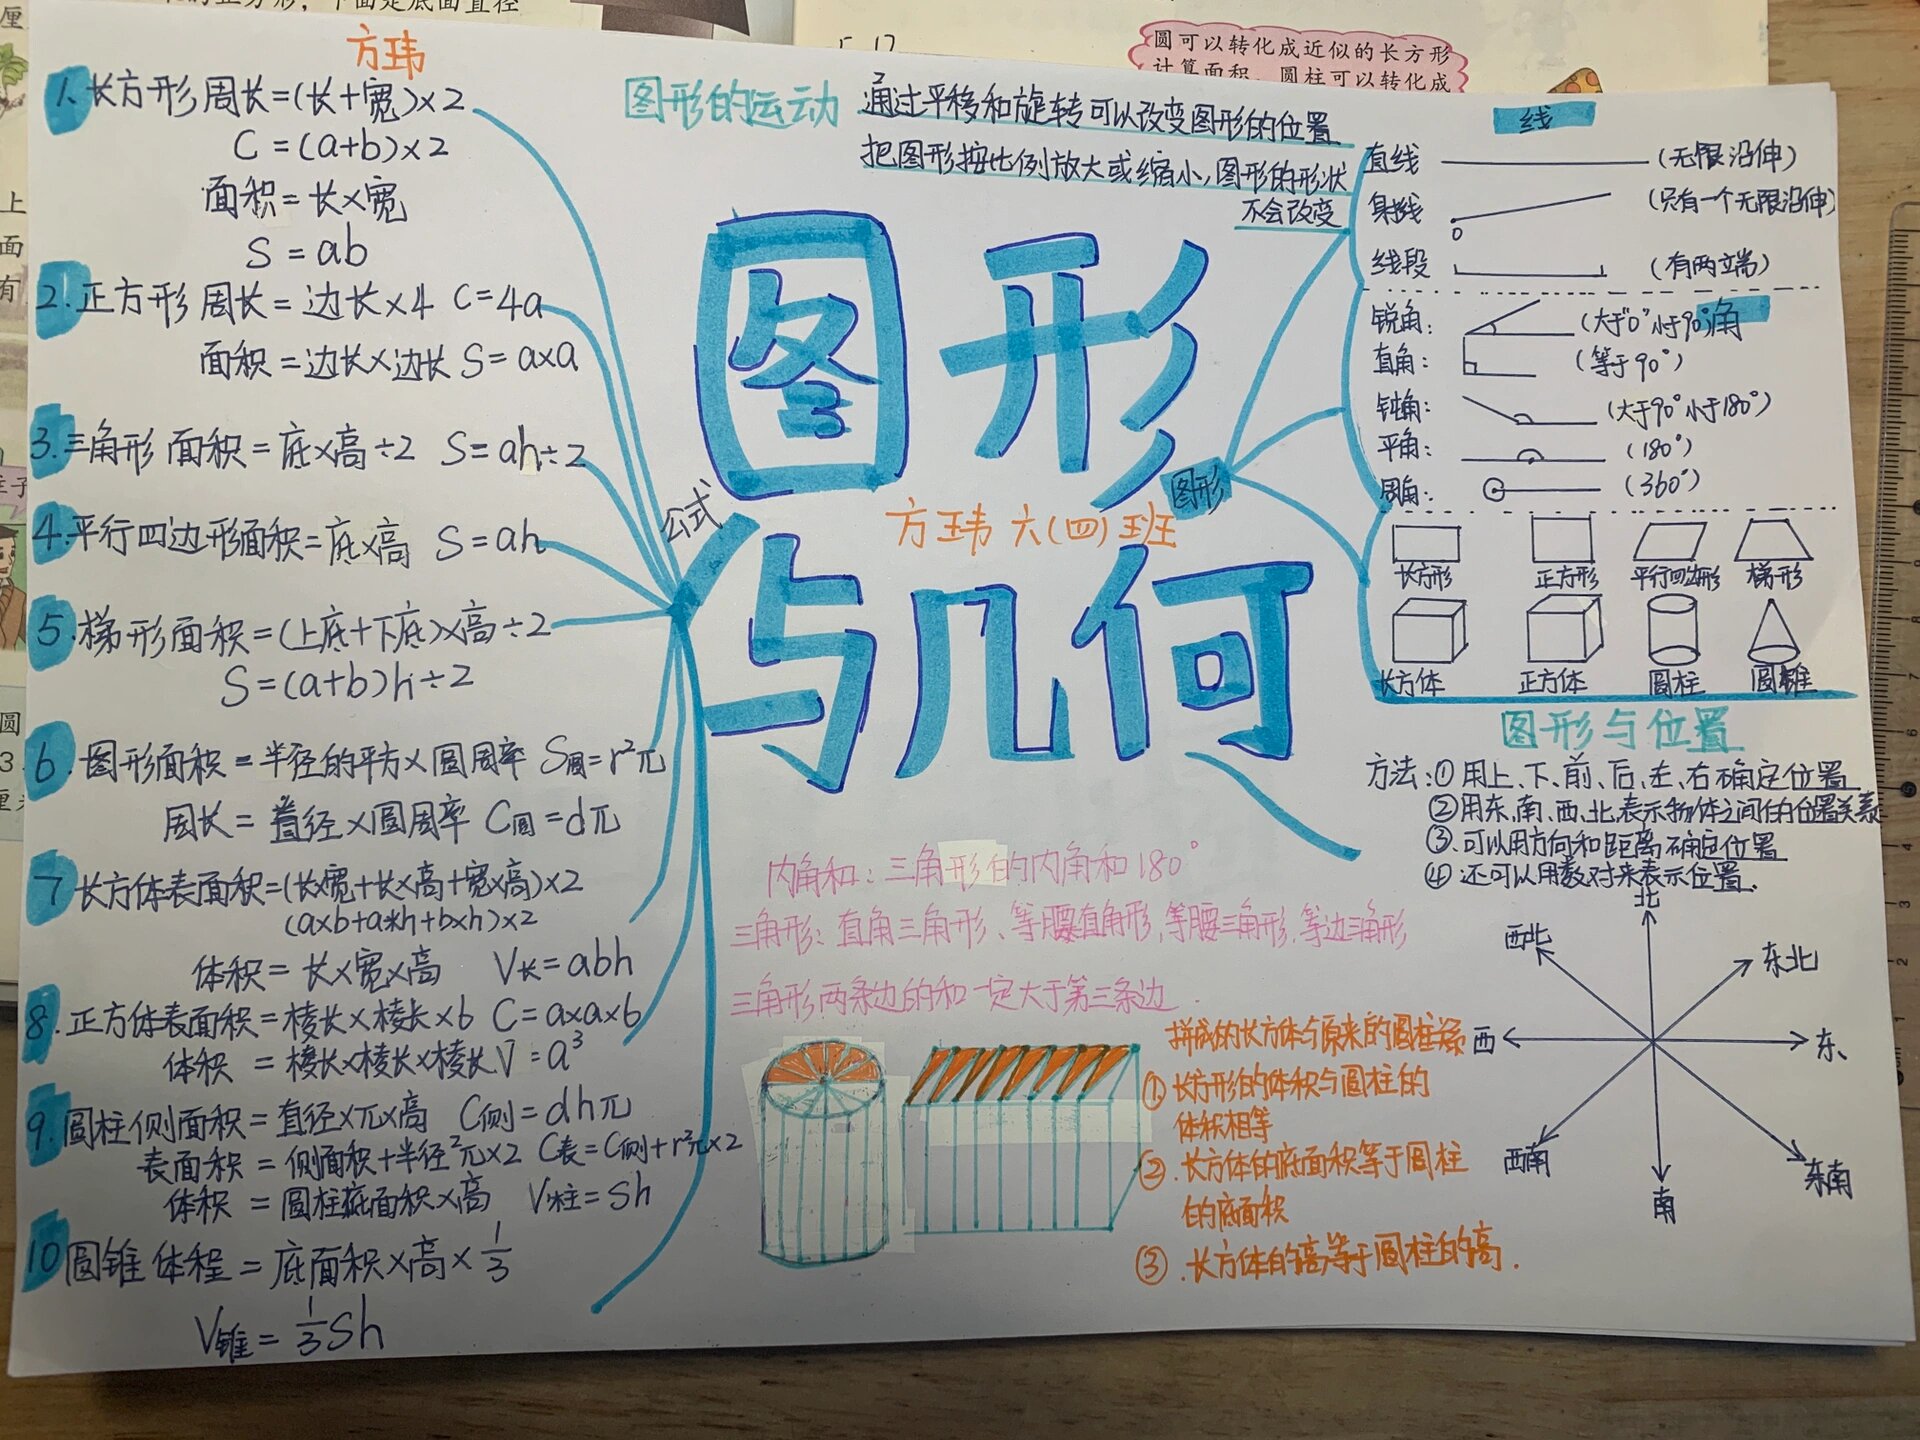 方玮
1.长方形周长=(长+宽)×2
C=(a+b)×2
面积=长×宽
S=ab
2.正方形周长=边长×4 C=4a
面积=边长×边长 S=a×a
3.三角形面积=底×高÷2 S=ah÷2
4.平行四边形面积=底×高 S=ah
5.梯形面积=(上底+下底)×高÷2
S=(a+b)h÷2
6.图形面积=半径的平方×圆周率 S圆=r²π
周长=直径×圆周率 C圆=dπ
7.长方体表面积=(长×宽+长×高+宽×高)×2
(a×b+a*h+b×h)×2
体积=长×宽×高 V长=abh
8.正方体表面积=棱长×棱长×6 C=a×a×6
体积=棱长×棱长×棱长 V=a³
9.圆柱侧面积=直径×π×高 C侧=dhπ
表面积=侧面积+半径²π×2 C表=C侧+r²π×2
体积=圆柱底面积×高 V柱=Sh
10圆锥体程=底面积×高×1/3
V锥=1/3Sh
公式
图形的运动
通过平移和旋转可以改变图形的位置
把图形按比例放大或缩小,图形的形状
不会改变
图形
与几何
方玮 六(四)班
图形
线
直线 (无限沿伸)
射线 0 (只有一个无限沿伸)
线段 (有两端)
角
锐角: (大于0°小于90°)
直角: (等于90°)
钝角: (大于90°小于180°)
平角: (180°)
周角: (360°)
长方形 正方形 平行四边形 梯形
长方体 正方体 圆柱 圆锥
图形与位置
方法:①用上、下、前、后、左、右确定位置
②用东、南、西、北,表示物体之间的位置关系
③.可以用方向和距离确定位置
④.还可以用数对来表示位置.
北
西北 东北
西 东、
西南 东南
南
内角和:三角形的内角和180°
三角形:直角三角形、等腰直角形,等腰三角形,等边三角形
三角形两条边的和一定大于第三条边.
拼成的长方体与原来的圆柱
①长方形的体积与圆柱的
体积相等
②.长方体的底面积等于圆柱
的底面积
③.长方体的高等于圆柱的高.
圆可以转化成近似的长方形
计算面积,圆柱可以转化成